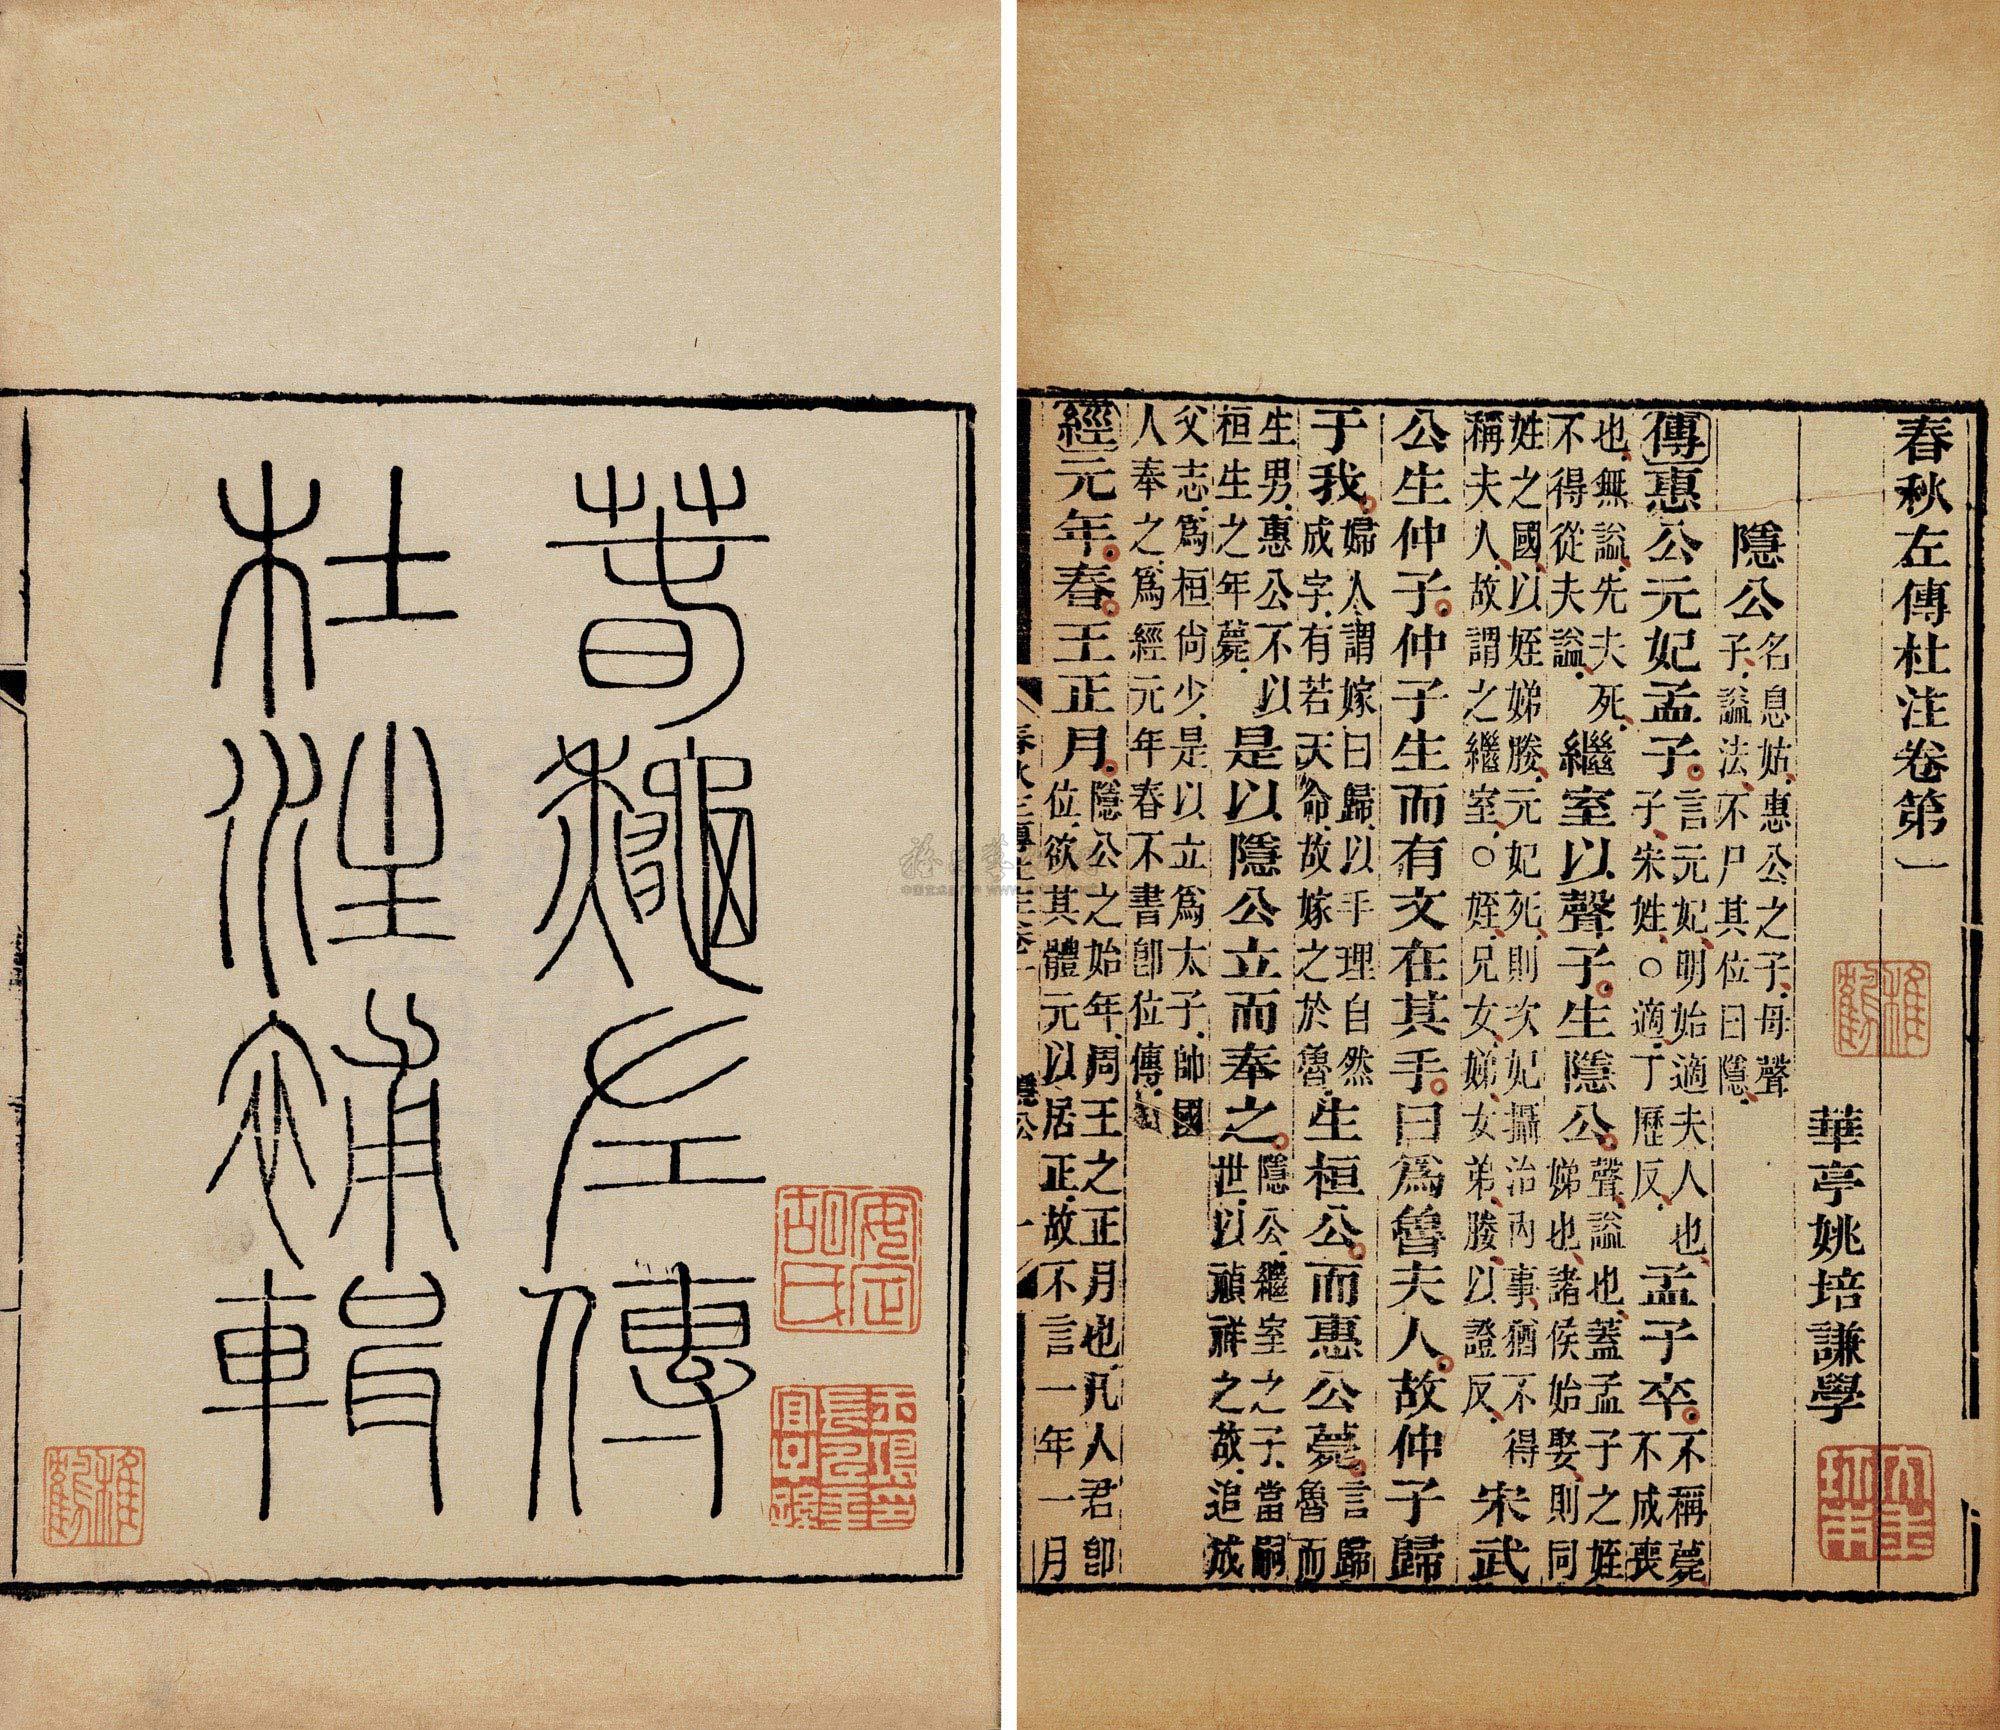 春秋左傳
杜注補輯
安定胡氏
春秋左傳杜注卷第一
華亭姚培謙學
隱公名息姑、惠公之子、母聲
子、謚法、不尸其位曰隱、
傳惠公元妃孟子。言元妃、明始適夫人也、
子、宋姓、○適、丁歷反、
孟子卒。不稱薨、
不成喪
也、無謚、先夫死、
不得從夫謚、
繼室以聲子。生隱公。聲、謚也、蓋孟子之姪
娣也、諸侯始娶、則同
姓之國、以姪娣媵、元妃死、則次妃攝治內事、猶不得
稱夫人、故謂之繼室、○姪、兄女、娣、女弟、媵、以證反、
宋武
公生仲子。仲子生而有文在其手。曰爲魯夫人。故仲子歸
于我。婦人謂嫁曰歸、以手理自然
成字、有若天命、故嫁之於魯、
生桓公。而惠公薨。言歸
魯而
生男、惠公不以
桓生之年薨、
是以隱公立而奉之。隱公、繼室之子、當嗣
世、以禎祥之故、追成
父志、爲桓尙少、是以立爲太子、帥國
人奉之、爲經元年春不書卽位傳、
經元年。春。王正月。隱公之始年、周王之正月也、凡人君卽
位、欲其體元以居正、故不言一年一月
隱公
一